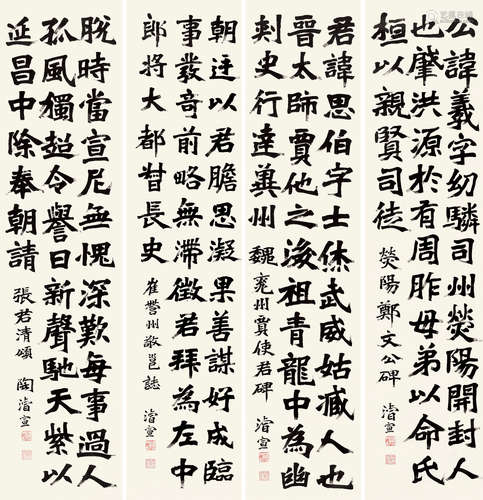 公諱羲字幼驎司州熒陽開封人
也肇洪源於有周胙母弟以命氏
桓以親賢司徒 熒陽鄭文公碑 濬宣
君諱思伯字士休武威姑臧人也
晉太師賈他之後祖青龍中為幽
刺史行達冀州 魏兗州賈使君碑 濬宣
朝廷以君膽思凝果善謀好成臨
事發奇前略無滯徵君拜為左中
郎將大都督長史 崔營州敬邕誌 濬宣
脫時當宣尼無愧深歎每事過人
孤風獨超令譽日新聲馳天紫以
延昌中除奉朝請 張君清頌 陶濬宣